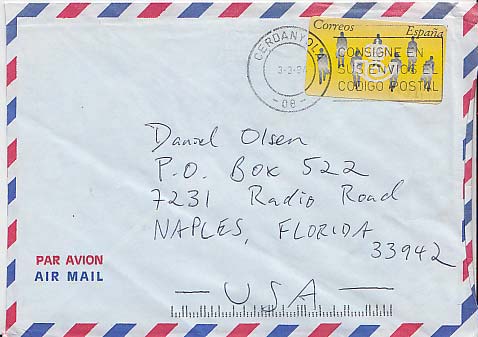 Correos España
CERDANYOLA
- 08 -
CONSIGNE EN
SUS ENVIOS EL
CODIGO POSTAL
Daniel Olsen
P.O. Box 522
7231 Radio Road
NAPLES, FLORIDA
33942
PAR AVION
AIR MAIL
- USA -